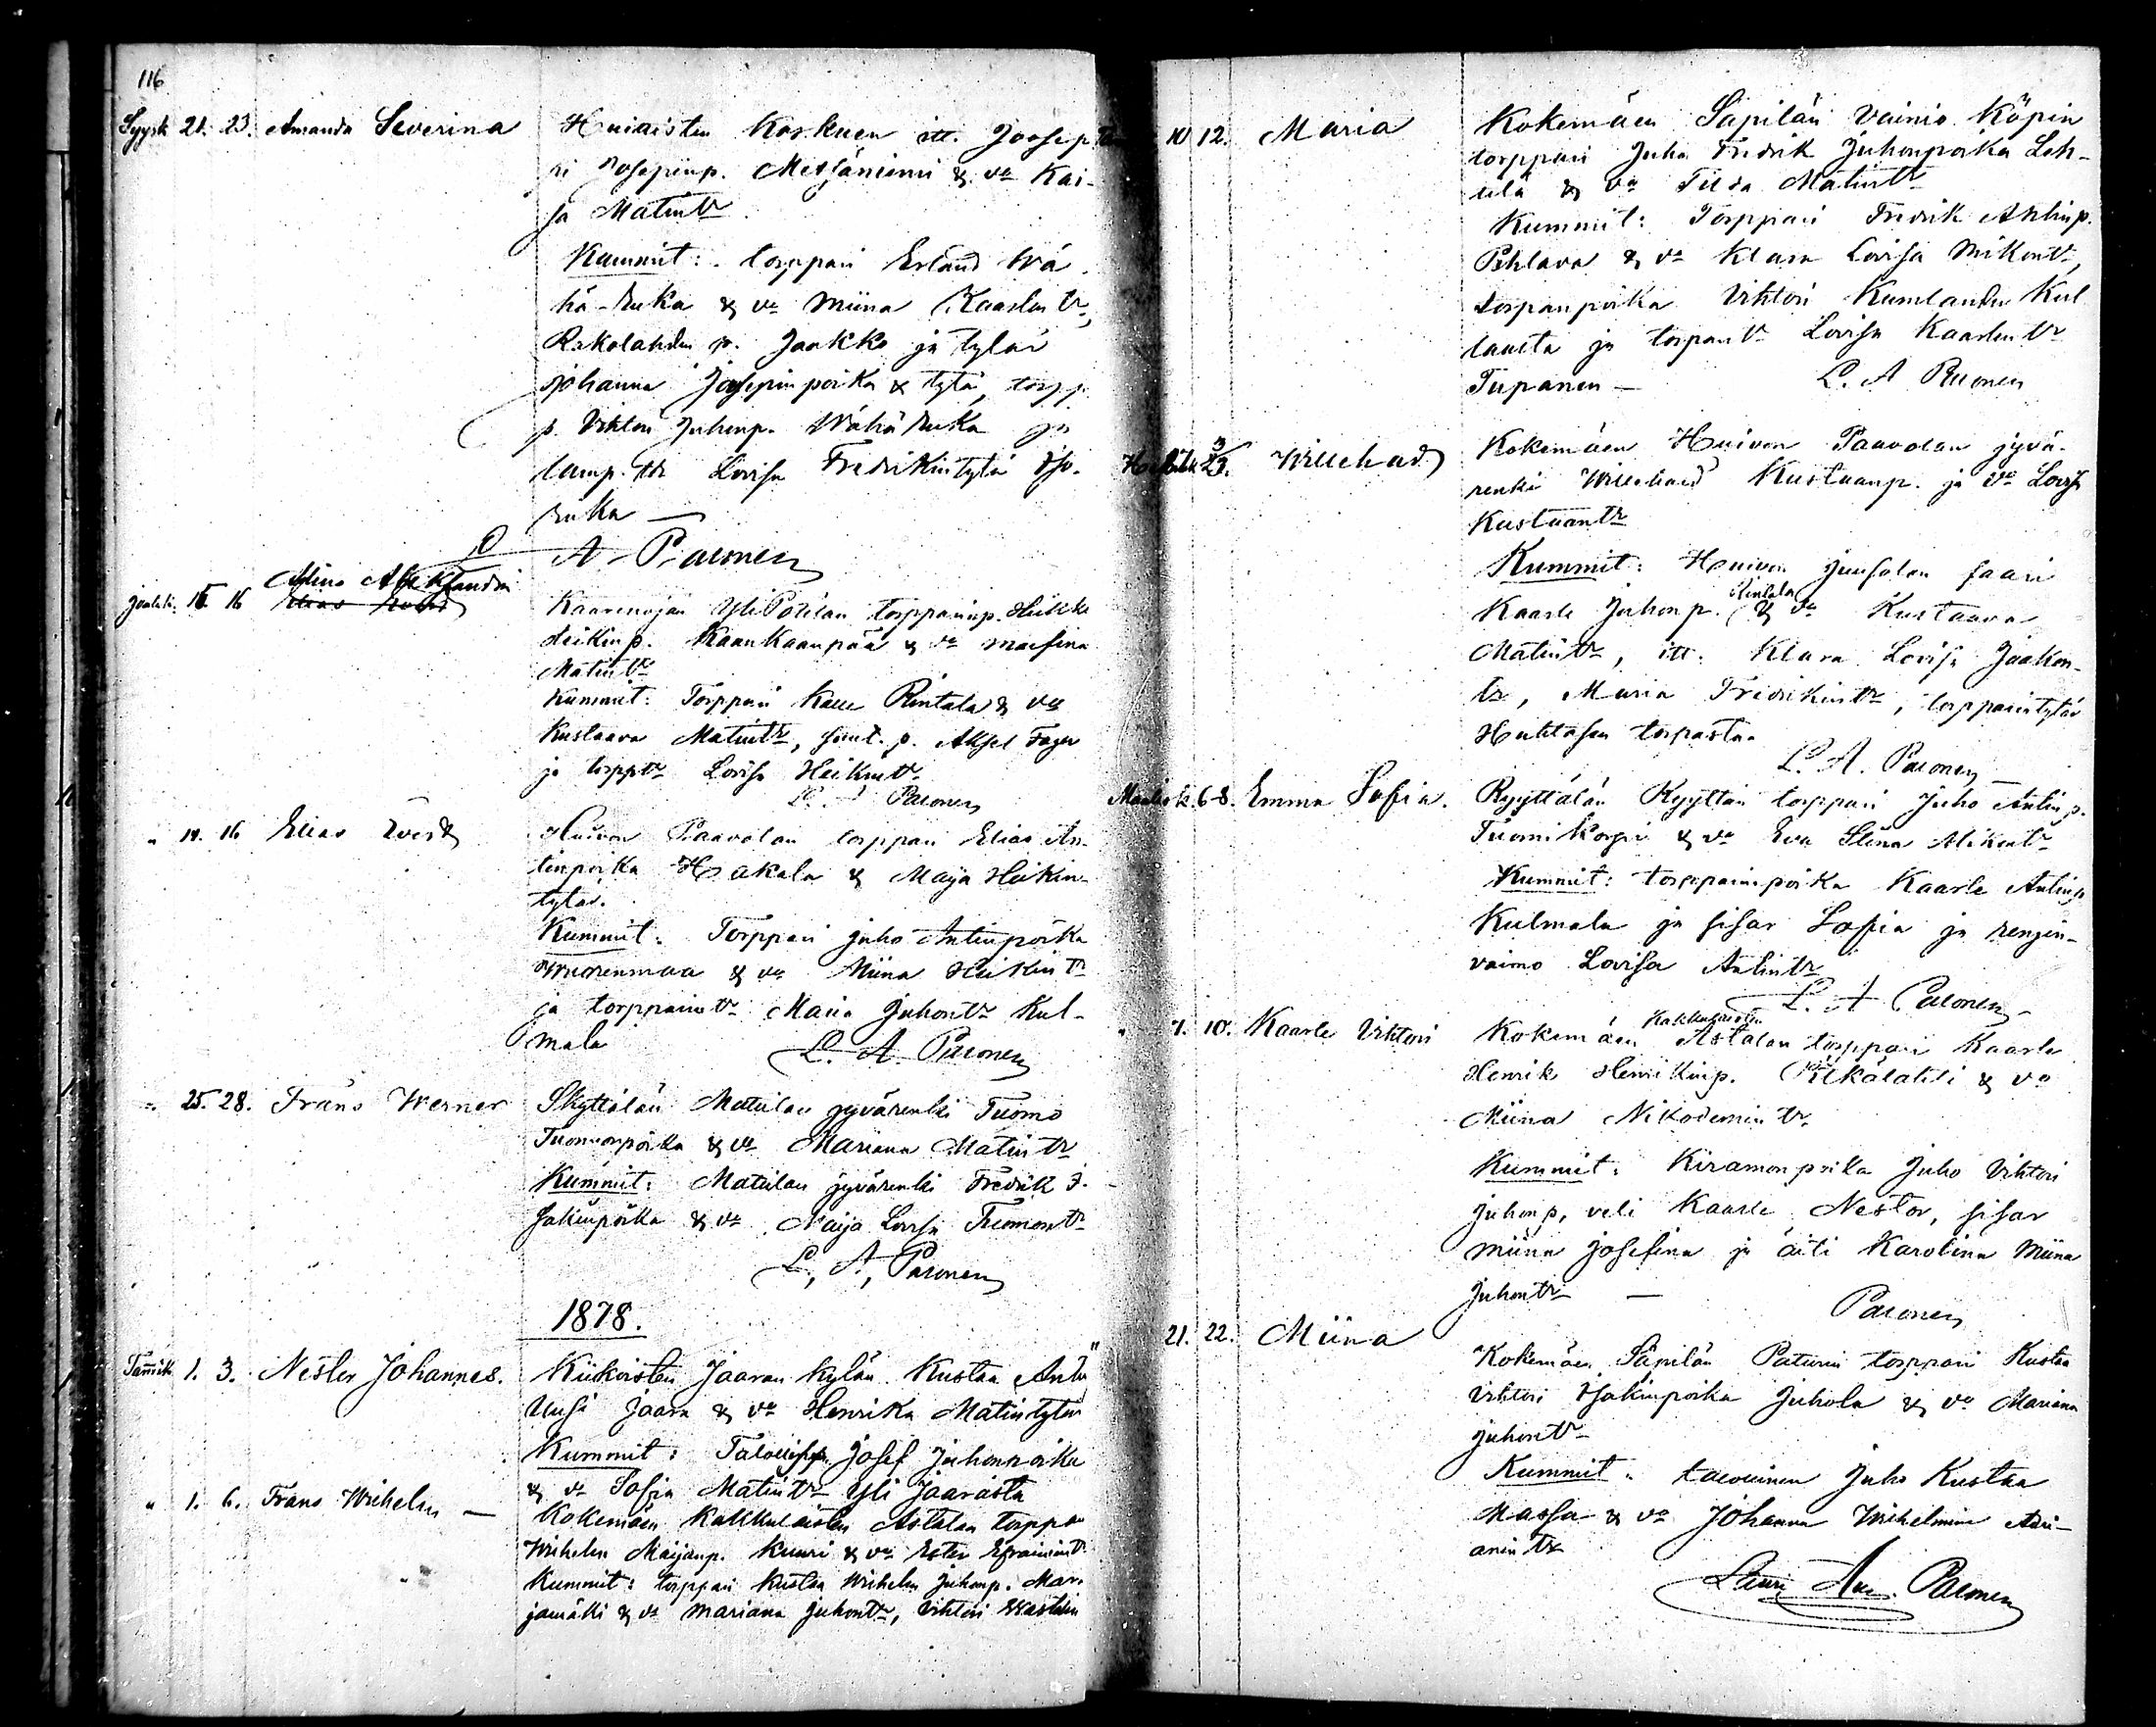 116
Syysk 21. 23. Amanda Severina Huiaisten Koskuen itt. Joosep
ri Josepinp. Metsäniemi & va Kai-
sa Matintr
Kummit: torppari Erland Wä-
hä-Ruka & va Miina Kaarlentr,
p. Jaakko ja tytär
Johanna Josepinpoika & tytär, torpp
p. Vihtori Juhonp. Wähä Ruka ja
lamp. tr Lovisa Fredrikintytär Iso-
ruka —
A. Palonen
Jouluk. 15. 16 Alina Aleksandra
Kaarenojan Yli Potilan torpparinp. Heikki
Heikinp. Kaankaanpää & va Maefina
Matintr
Kummit: Torppari Kalle Rintala & va
Kustaava Matintr, suut. p. Aksel Fager
ja torpptr Lovisa Heikintr
L. A. Palonen
" 14. 16 Elias Evert Huivon Paavolan torppari Elias An-
tinpoika Hakala & Maija Heikin-
tytär.
Kummit: Torppari Juho Antinpoika
Wuorenmaa & va Miina Heikintr
ja torpparintr Maria Juhontr Kul-
mala
L. A. Palonen
" 25. 28. Frans Werner Skyttälän Matulan jyvärenki Tuomo
Tuomonpoika & va Mariana Matintr
Kummit: Matulan jyvärenki Fredrik I-
sakinpoika & va Maija Lovisa Tuomontr
L. A. Palonen
1878.
Tammik 1. 3. Nestor Johannes. Kiikoisten Jaaran kylän Kustaa Antin
Uusi Jaara & va Henrika Matintytär
Kummit: Talollisen Josef Juhonpoika
& va Sofia Matintr Yli Jaarasta
" 1. 6. Frans Wilhelm — Kokemäen Kakkulaisten Astalan torppari
Wilhelm Maijanp. Kuuri & va Ester Efraimintr
Kummit: torppari Kustaa Wilhelm Juhonp. Mar-
jamäki & va Mariana Juhontr, Vihtori
10 12. Maria Kokemäen Säpilän Vainio Köpin
torppari Juha Fredrik Juhonpoika Leh-
tilä & va Tilda Matintr
Kummit: Torppari Fredrik Antinp.
Pehlava & va Klara Lovisa Mikontr,
torpanpoika Vihtori Kumlander Kul
laasta ja torpantr Lovisa Kaarlentr
Tupanen — L. A. Palonen
Willehad Kokemäen Huivon Paavolan jyvä-
renki Willehard Kustaanp. ja va Lovisa
Kustaantr
Kummit: Huivon Juusolan saari
Kaarle Juhonp. Hintala & va Kustaava
Matintr, itt. Klara Lovisa Jaakon-
tr, Maria Fredrikintr, torpparintytär
Huhtasen torpasta.
L. A. Palonen
Maalisk. 6 8. Emma Sofia. Ryyttälän Kyyttän torppari Juho Antinp.
Tuomikorpi & va Eva Stina Mikontr
Kummit: torpparinpoika Kaarle Antinp
Kulmala ja sisar Sofia ja rengin-
vaimo Lovisa Antintr
L. A. Palonen
" 7. 10. Kaarle Vihtori Kokemäen Kakkulaisten Astalan torppari Kaarle
Henrik Henrikinp. & va
Miina Nikodemintr.
Kummit: Kiramonpoika Juho Vihtori
Juhonp, veli Kaarle Nestor, sisar
Miina Josefina ja äiti Karolina Miina
Juhontr —
Palonen
21. 22. Miina Kokemäen Säpilän Paturin torppari Kustaa
Vihtori Isakinpoika Juhola & va Mariana
Juhontr
Kummit: talollinen Juho Kustaa
Massa & va Johanna Wilhelmina Adri-
anintr
Lauri Aug. Palonen